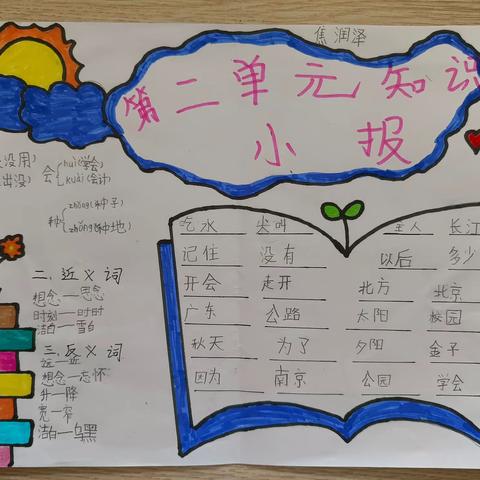 焦润泽
第二单元知识
小报
没用)
出没)
会 huì(学会)
kuài(会计)
种 zhǒng(种子)
zhòng(种地)
二、近义词
想念—思念
时刻—时时
洁白—雪白
三、反义词
远—近
想念—忘怀
升—降
宽—窄
洁白—乌黑
吃水 尖叫 主人 长江
记住 没有 以后 多少
开会 走开 北方 北京
广东 公路 太阳 校园
秋天 为了 夕阳 金子
因为 南京 公园 学会